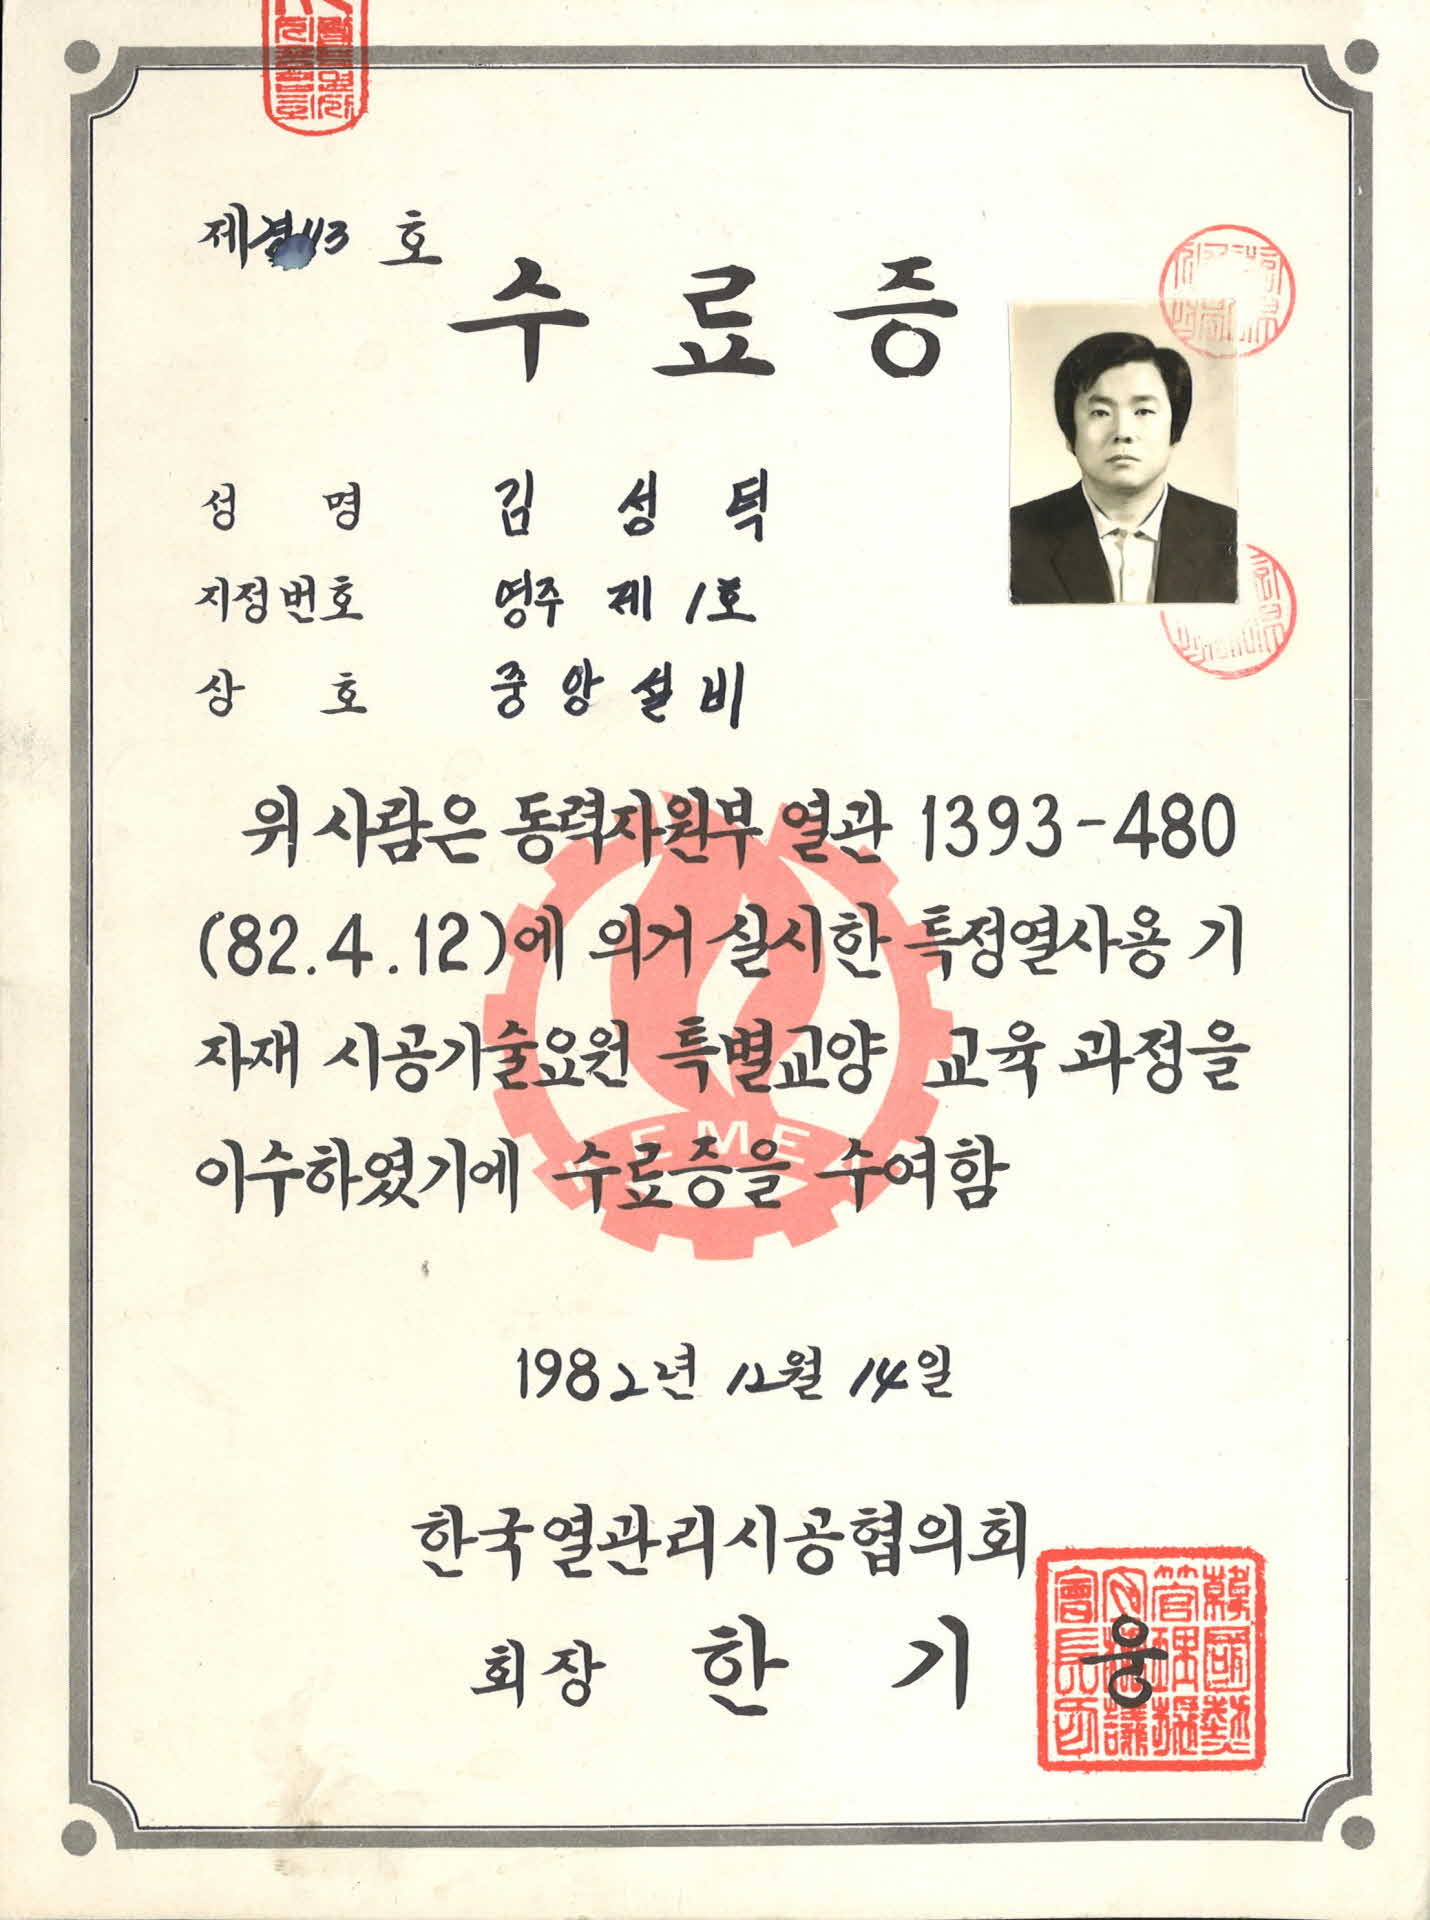 제경113 호
수 료 증
성 명 김 성 턱
지정번호 영주 제 1호
상 호 중앙설비
위 사람은 동력자원부 열관 1393-480
(82.4.12)에 의거 실시한 특정열사용 기
자재 시공기술요원 특별교양 교육 과정을
이수하였기에 수료증을 수여함
1982년 12월 14일
한국열관리시공협의회
회장 한 기 웅